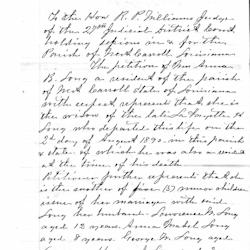 To the Hon R. P. Williams Judge
of the 27th Judicial District Court
holding sessions in & for the
Parish of West Carroll Louisiana
The petition of Mrs Anna
B. Long a resident of the parish
of West Carroll State of Louisiana
with respect represent that she is
the widow of the late Lafayette H
Long who departed this life on the
2d day of August 1890. in this parish
& State of which he was also a resident
at the time of his death.
Petitioner further represent that she
is the mother of five (5) minor children
issue of her marriage with said
Long her husband. Lawrence W. Long
aged 12 years. Anna Mabel Long
aged 8 years. George W. Long aged